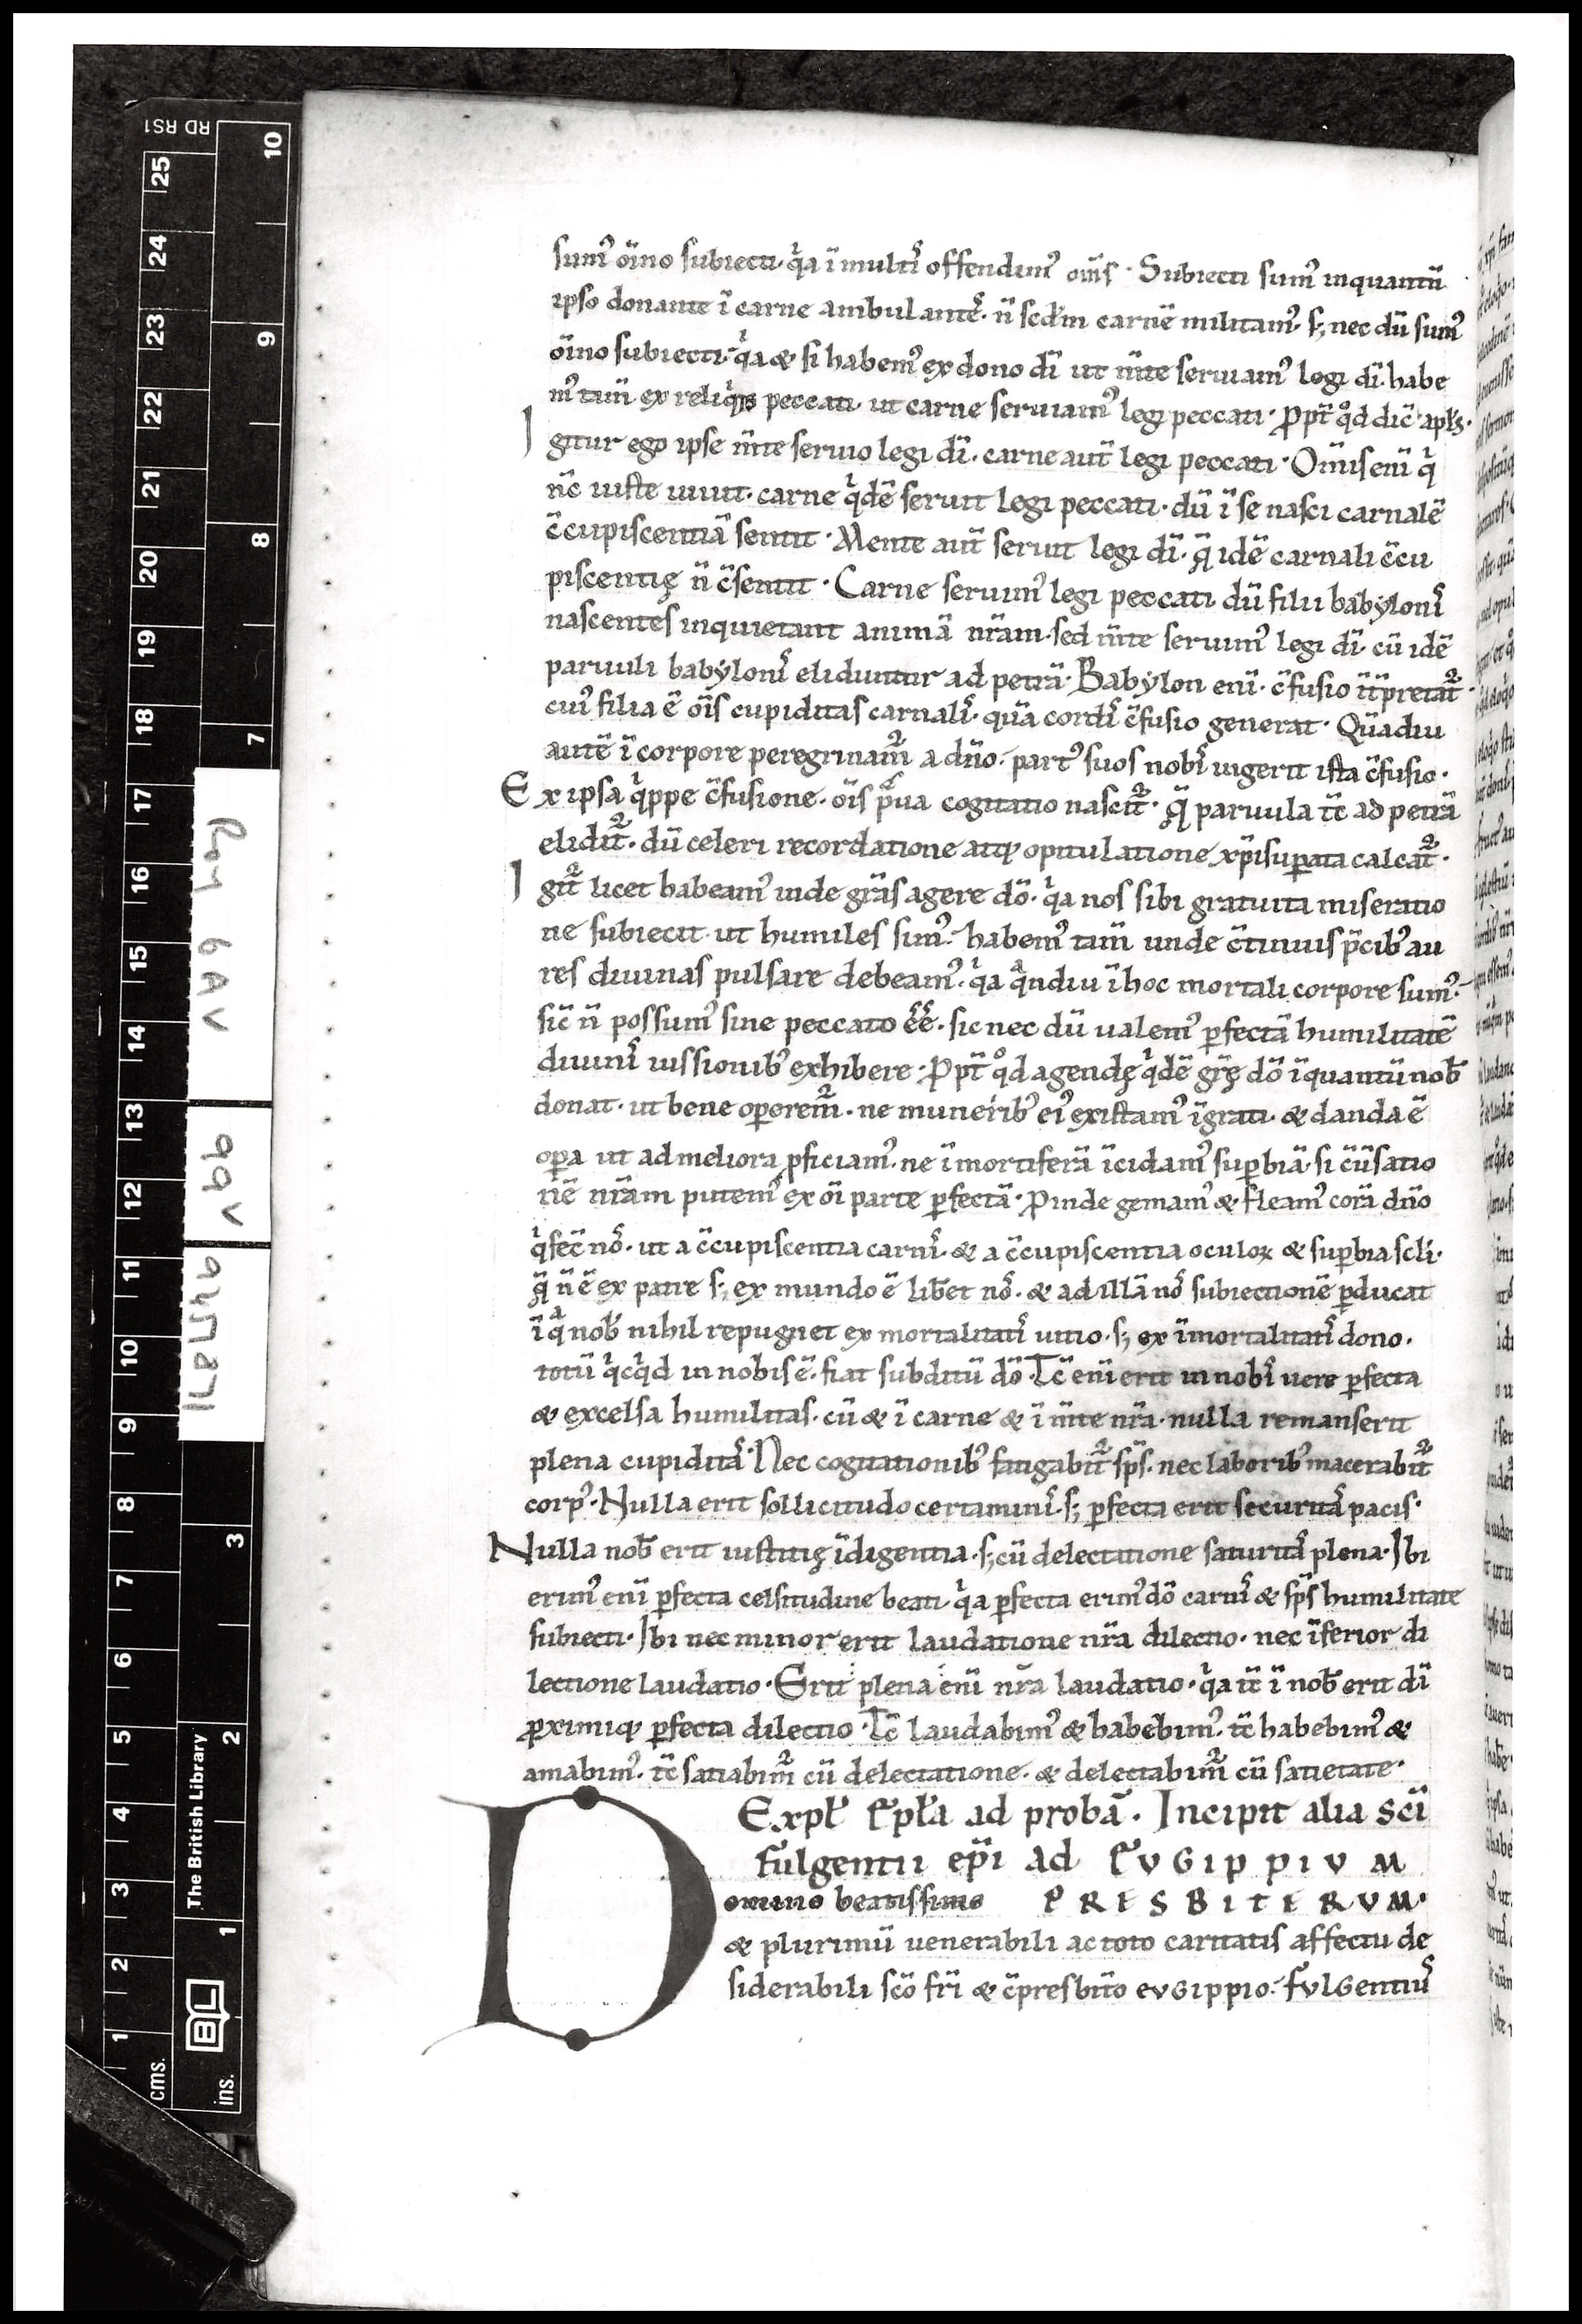 sum᾽ oīno subiecti· qͥa ī multꝭ offendim᾽ oīns· Subiecti sum᾽ inquantū
ipso donante ī carne ambulantꝭ· n̄ scdm̄ carnē militam᾽· s; nec dū sum᾽
oīno subiecti· qͥa & si habem᾽ ex dono dī ut m̄te seruiam᾽ legi dī· habe
m᾽ tam̄ ex reliqͥis peccati· ut carne seruiam᾽ legi peccati· Ppt̄ qͦd dic̄ apl̄s·
I gitur ego ipse m̄te seruio legi dī· carne aut̄ legi peccati· Om̄is enī qͥ
nc̄ iuste uiuit· carne qͥdē seruit legi peccati· dū ī se nasci carnalē
c̄cupiscentiā sentit· Mente aut̄ seruit legi dī· q̄ idē carnali c̄cu
piscentię n̄ c̄sentit· Carne seruim᾽ legi peccati dū filii babẏlonꝭ
nascentes inquietant animā nr̄am· sed m̄te seruim᾽ legi dī· cū idē
paruuli babẏlonꝭ eliduntur ad petrā· Babẏlon enī· c̄fusio īt̄pretat᷑·
cui᾽ filia ē oīs cupiditas carnalꝭ· quā cordꝭ c̄fusio generat· Quādiu
autē ī corpore peregrinam᷑ a dn̄o· part᾽ suos nobꝭ ingerit ista c̄fusio·
E x ipsa qͥppe c̄fusione· oīs p̄ua cogitatio nascit᷑· q̄ paruula tc̄ ad petrā
elidit᷑· dū celeri recordatione atq; opitulatione xp̄i suꝑata calcat᷑·
I git᷑ licet habeam᾽ inde gr̄as agere dō· qͥa nos sibi gratuita miseratio
ne subiecit· ut humiles sim᾽· habem᾽ tam̄ unde c̄tinuis p̄cib᾽ au
res diuinas pulsare debeam᾽· qͥa qͣndiu ī hoc mortali corpore sum᾽·
sic̄ n̄ possum᾽ sine peccato ēē· sic nec dū ualem᾽ ꝑfectā humilitatē
diuinꝭ iussionib᾽ exhibere· Ppt̄ qͦd agendę qͥdē gr̄ę dō īquantū nob̄
donat· ut bene oꝑerem᷑· ne munerib᾽ ei᾽ existam᾽ īgrati· & danda ē
oꝑa ut ad meliora ꝓficiam᾽· ne ī mortiferā īcidam᾽ suꝑbiā· si c̄ūsatio
nē nr̄am putem᾽ ex oī parte ꝑfectā· Pinde gemam᾽ & fleam᾽ corā dn̄o
qͥ fec̄ nos̄· ut a c̄cupiscentia carnꝭ· & a c̄cupiscentia oculoꝝ & suꝑbia scl̄i·
q̄ n̄ ē ex patre s; ex mundo ē lib̄et nos̄· & ad illā nos̄ subiectionē ꝑducat
ī qͣ nob̄ nihil repugnet ex mortalitatꝭ uitio· s; ex īmortalitatꝭ dono·
totū qͥcqͥd in nobis ē· fiat subditū dō· Tc̄ enī erit in nobꝭ uere ꝑfecta
& excelsa humilitas· cū & ī carne & ī m̄te nr̄a· nulla remanserit
plena cupiditā· Nec cogitationib᾽ fatigabit᷑ sp̄s· nec laborib᾽ macerabit᷑
corp᾽· Nulla erit sollicitudo certaminꝭ· s; ꝑfecta erit securitā pacis·
Nulla nob̄ erit iustitię īdigentia· s; cū delectatione saturitā plena· Ibi
erim᾽ enī ꝑfecta celsitudine beati· qͥa ꝑfecta erim᾽ dō carnꝭ & sp̄s humilitate
subiecti· Ibi nec minor erit laudatione nr̄a dilectio· nec īferior di
lectione laudatio· Erit plena enī nr̄a laudatio· qͥa tc̄ ī nob̄ erit dī
ꝓximiq; ꝑfecta dilectio· Tc̄ laudabim᾽ & habebim᾽· tc̄ habebim᾽ &
amabim᾽· tc̄ satiabim᷑ cū delectatione· & delectabim᷑ cū satietate·
Expl̄ Epl̄a ad probā· Incipit alia sc̄i
fulgentii ep̄i ad EVGIPPIVM
D omino beatissimo PRESBITERVM·
& plurimū uenerabili ac toto caritatis affectu de
siderabili sc̄o fr̄i & c̄presbit̄o evgippio· fvlgentiꝰ
RD RS1
cms.
1 2 3 4 5 6 7 8 9 10 11 12 13 14 15 16 17 18 19 20 21 22 23 24 25
ins.
1 2 3 7 8 9 10
BL
The British Library
Roy 6 A V
99 V